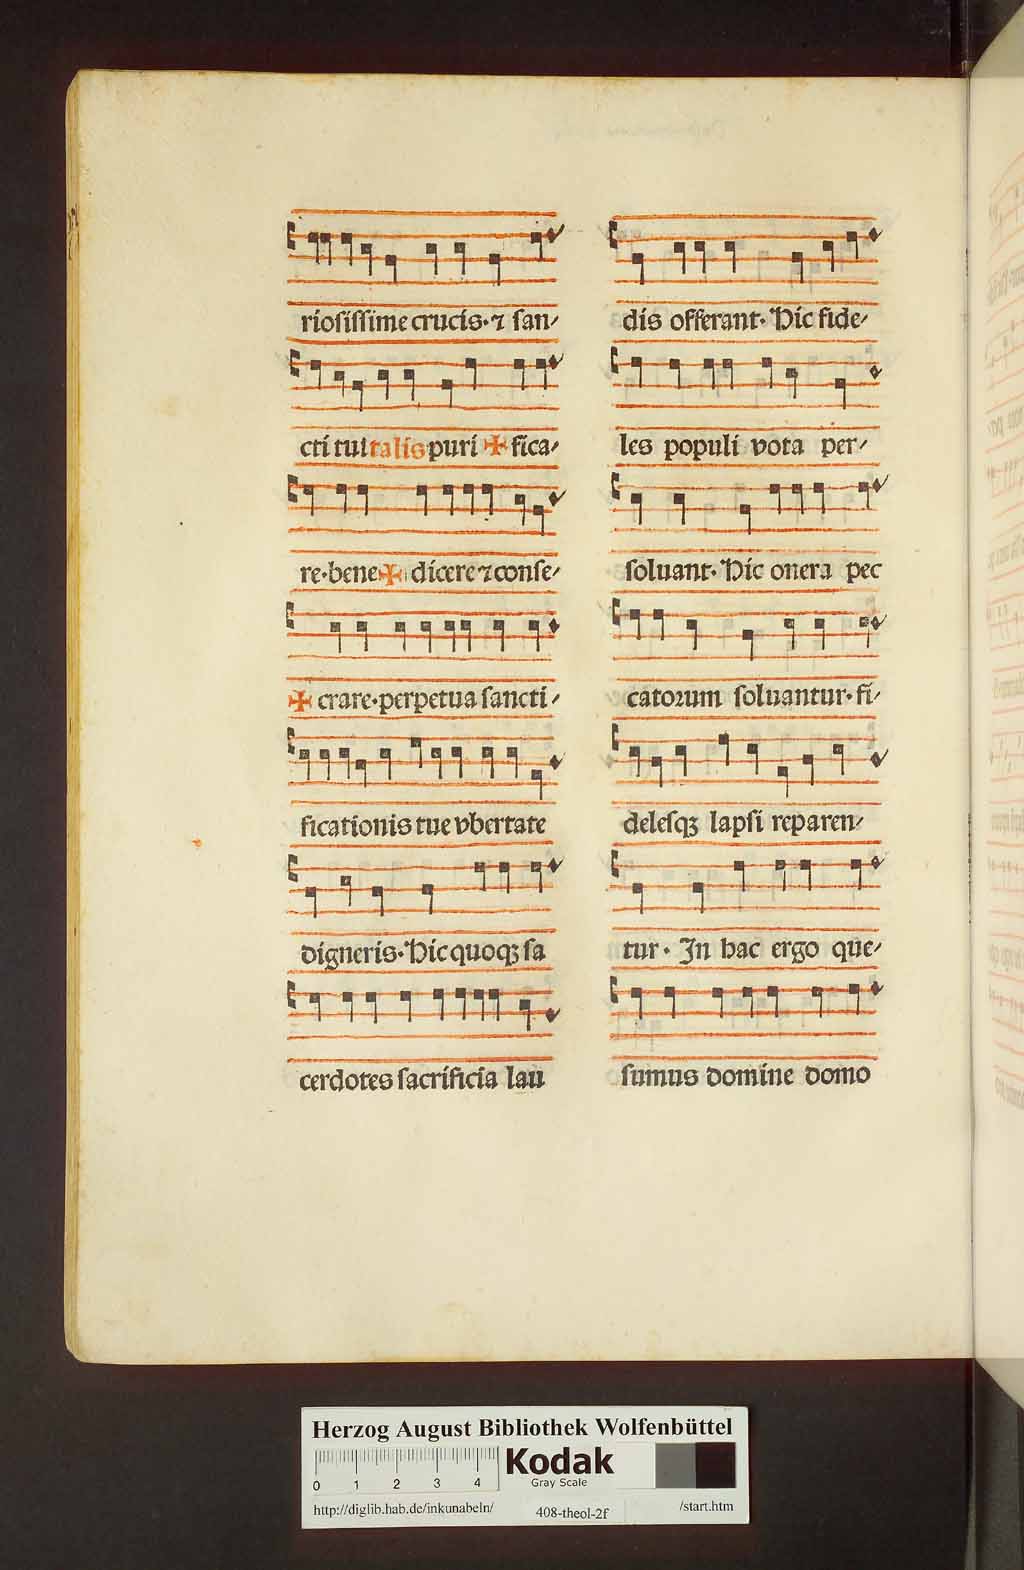 rioſiſſime crucis·⁊ ſan⸗
cti tui talis puri ✠ fica⸗
re·bene ✠ dicere ⁊ conſe⸗
✠ crare·perpetua ſancti⸗
ficationis tue vbertate
digneris·Hic quoqꝫ ſa
cerdotes ſacrificia lau
dis offerant·Hic fide⸗
les populi vota per⸗
ſoluant·Hic onera pec
catoꝛum ſoluantur·fi⸗
deleſqꝫ lapſi reparen⸗
tur· In hac ergo que⸗
ſumus domine domo
Herzog August Bibliothek Wolfenbüttel
0 1 2 3 4
Kodak
Gray Scale
http://diglib.hab.de/inkunabeln/ 408-theol-2f /start.htm